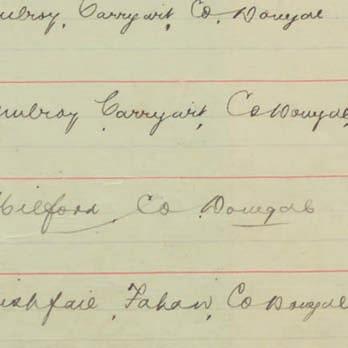 Mulroy, Carryart, Co. Donegal
Mulroy Carryart, Co Donegal,
Milford, Co Donegal
Fahan, Co Donegal